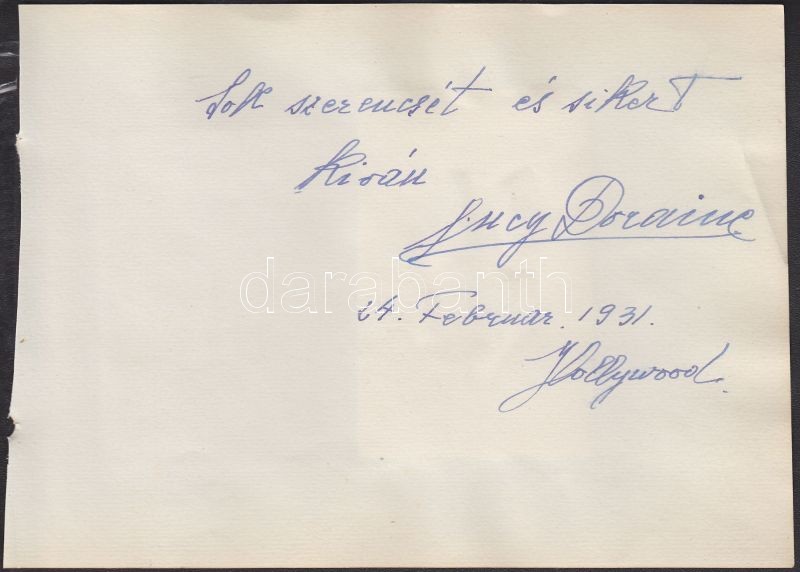 Sok szerencsét és sikert
kiván
Lucy Doraine
darabanth
24. Februar. 1931.
Hollywood.